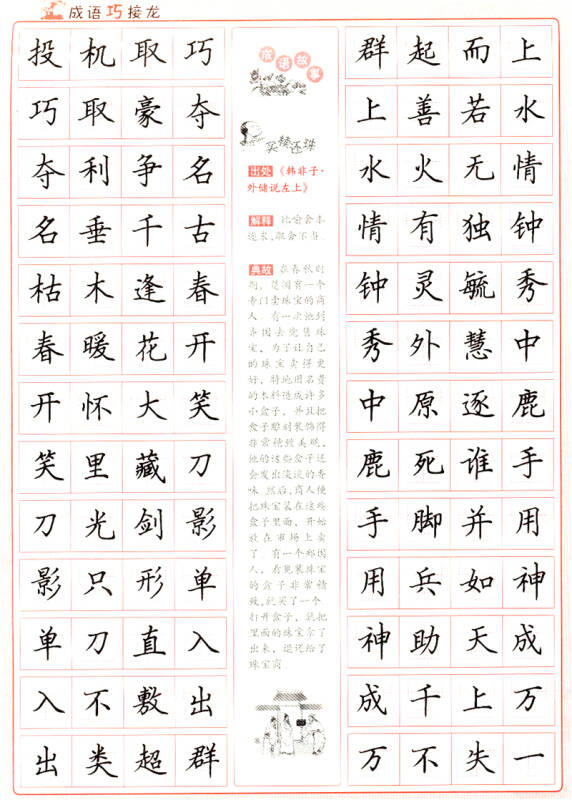 成语巧接龙
投机取巧
巧取豪夺
夺利争名
名垂千古
枯木逢春
春暖花开
开怀大笑
笑里藏刀
刀光剑影
影只形单
单刀直入
入不敷出
出类超群
成语故事
买椟还珠
出处《韩非子·
外储说左上》
解释 比喻舍本
逐末,取舍不当。
典故 在春秋时
期,楚国有一个
专门卖珠宝的商
人 有一次他到
各国去兜售珠
宝,为了让自己
的珠宝卖得更
好,特地用名贵
的木料造成许多
小盒子,并且把
盒子雕刻装饰得
非常精致美观,
他的这些盒子还
会发出淡淡的香
味 然后,商人便
把珠宝装在这些
盒子里面,开始
放在市场上卖
了 有一个郑国
人,看见装珠宝
的盒子非常精
致,就买了一个
打开盒子,就把
里面的珠宝拿了
出来,退还给了
珠宝商
群起而上
上善若水
水火无情
情有独钟
钟灵毓秀
秀外慧中
中原逐鹿
鹿死谁手
手脚并用
用兵如神
神助天成
成千上万
万不失一